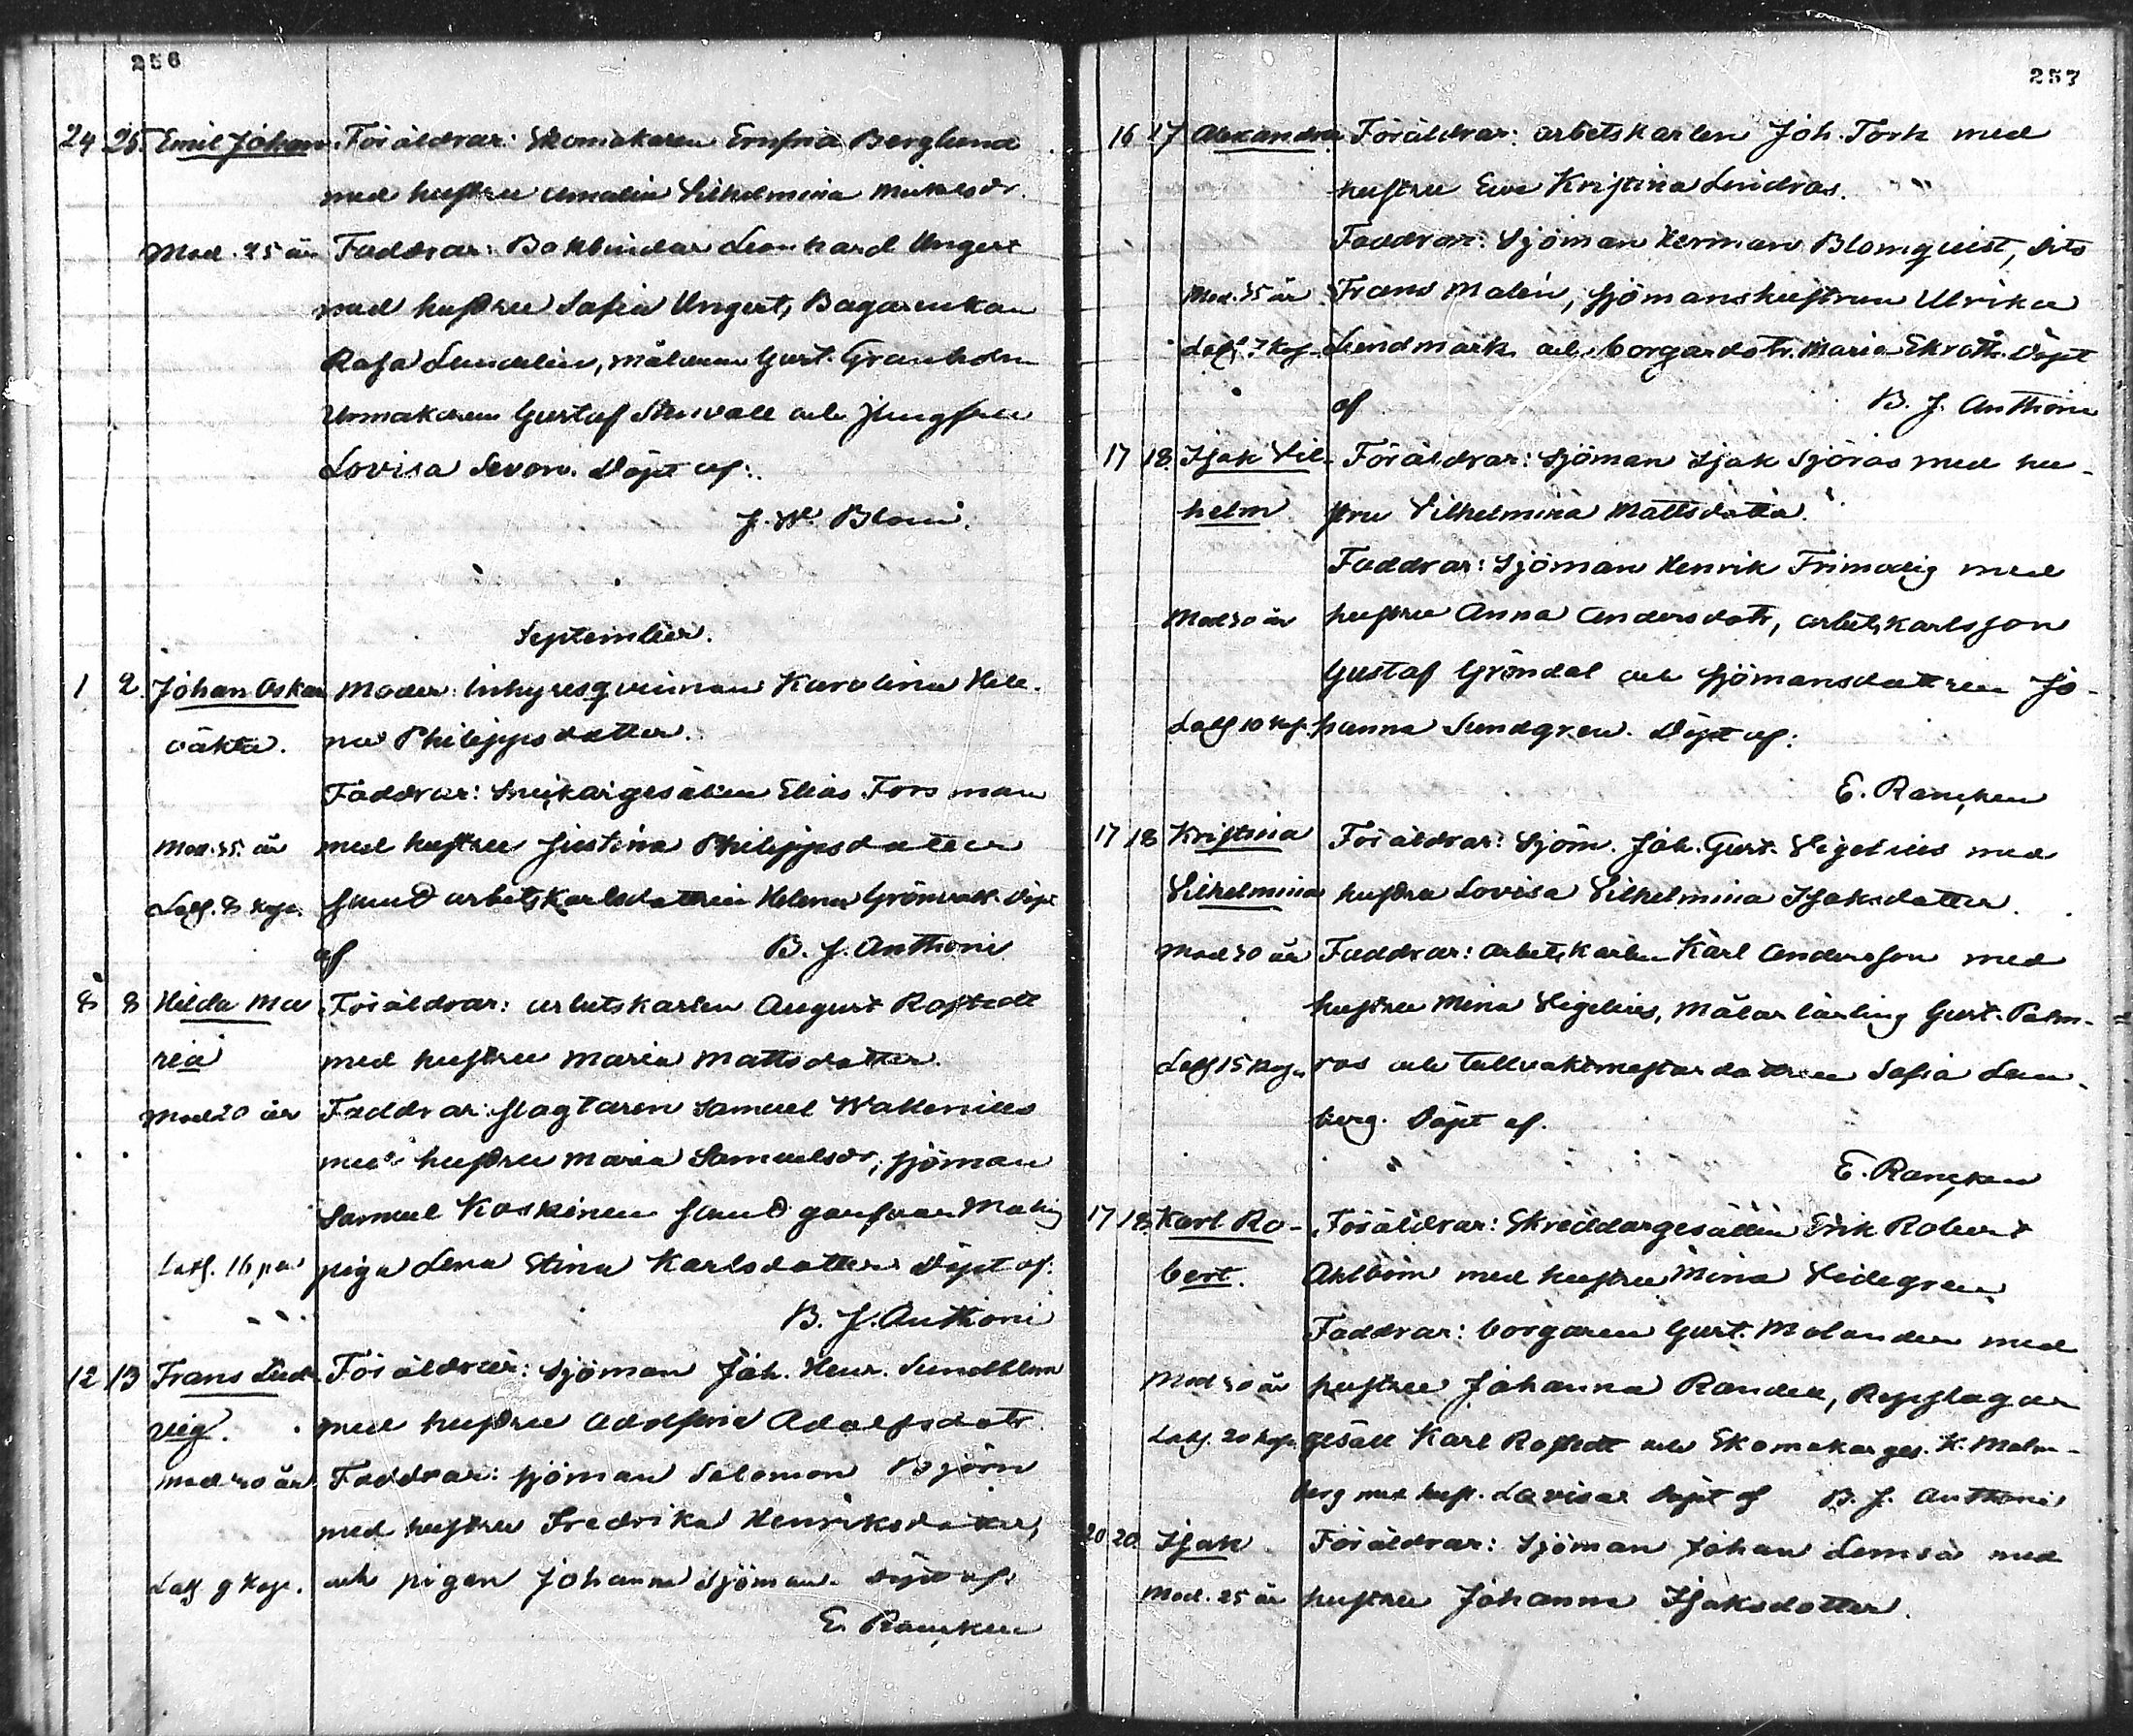 256
24 25. Emil Johan. Föräldrar: Skomakaren Emfrid Berglund
med hustru Amalia Vilhelmina Mickelsdr.
Mod. 25 år Faddrar: Bokbindar Leonhard Ungert
med hustru Sofia Ungert, Bagarenkan
Rosa Lundelin, målaren Gust. Granholm
Urmakaren Gustaf Stenvall och Jungfru
Lovisa Sevon. Döpt af:
J. W. Blom.
September.
1 2. Johan Oskar Moder: Inhyresqvinnan Karolina Hele-
oäkta. na Philippsdotter.
Faddrar: Snickargesällen Elias Forsman
Mod. 35. år med hustru Justina Philippsdotter
Lass. 8 kop. samt arbetskarlsdottren Helena Grönvall. Döpt
af B. J. Anthoni
8 8 Hilda Ma Föräldrar: arbetskarlen August Rostedt
ria med hustru Maria Mattsdotter.
Mod 20 år Faddrar: slagtaren Samuel Wallenius
med hustru Maria Samuelsdr, sjöman
Samuel Koskinen samt garfvar
Lass. 16 piga Lena Stina Karlsdotter Döpt af:
B. J. Anthoni
12 13 Frans Lud- Föräldrar: Sjöman Joh. Henr. Sundblom
vig. med hustru Adolfina Adolfsdotr
mod 30 år Faddrar: sjöman Salomon Björn
med hustru Fredrika Henriksdotter,
Lass 9 kop. och pigan Johanna Sjöman. Döpt af:
E. Rancken
257
16 17 Alexandra. Föräldrar: arbetskarlen Joh. Tork med
hustru Eva Kristina Lindros.
Faddrar: Sjöman Herman Blomqvist, dito
Mod. 35 år Frans Malén, sjömanshustrun Ulrika
Lass. 7 kop. Lindmark och borgardotr. Maria Ekroth. Döpt
af B. J. Anthoni
17 18. Isak Vil- Föräldrar: Sjöman Isak Sjöros med hu-
helm stru Vilhelmina Mattsdotter.
Faddrar: Sjöman Henrik Frimodig med
Mod 30 år hustru Anna Andersdotr, arbetskarlsson
Gustaf Gröndal och sjömansdottren Jo-
Lass 10 kop. hanna Sundgren. Döpt af:
E. Rancken
17 18 Kristina Föräldrar: Sjöm. Joh. Gust. Sigelius med
Vilhelmina hustru Lovisa Vilhelmina Isaksdotter.
Mod 30 år Faddrar: arbetskarlen Karl Andersson med
hustru Mina Sigelius, Målarlärling Gust. Palm-
Lass 15 kop. ros och tullvaktmästardottren Sofia Lun-
berg. Döpt af.
E. Rancken
17 18. Karl Ro- Föräldrar: Skräddargesällen Erik Robert
bert. Ahlbom med hustru Mina Videgren
Faddrar: borgaren Gust. Molander med
Mod 30 år hustru Johanna Randen, Repslagar
Lass. 20 kop. gesäll Karl Rostedt och Skomakarges. K. Malm-
berg med hust. Lovisa Döpt af B. J. Anthoni
20 20. Isak Föräldrar: Sjöman Johan Lemsa med
Mod. 25 år hustru Johanna Isaksdotter.